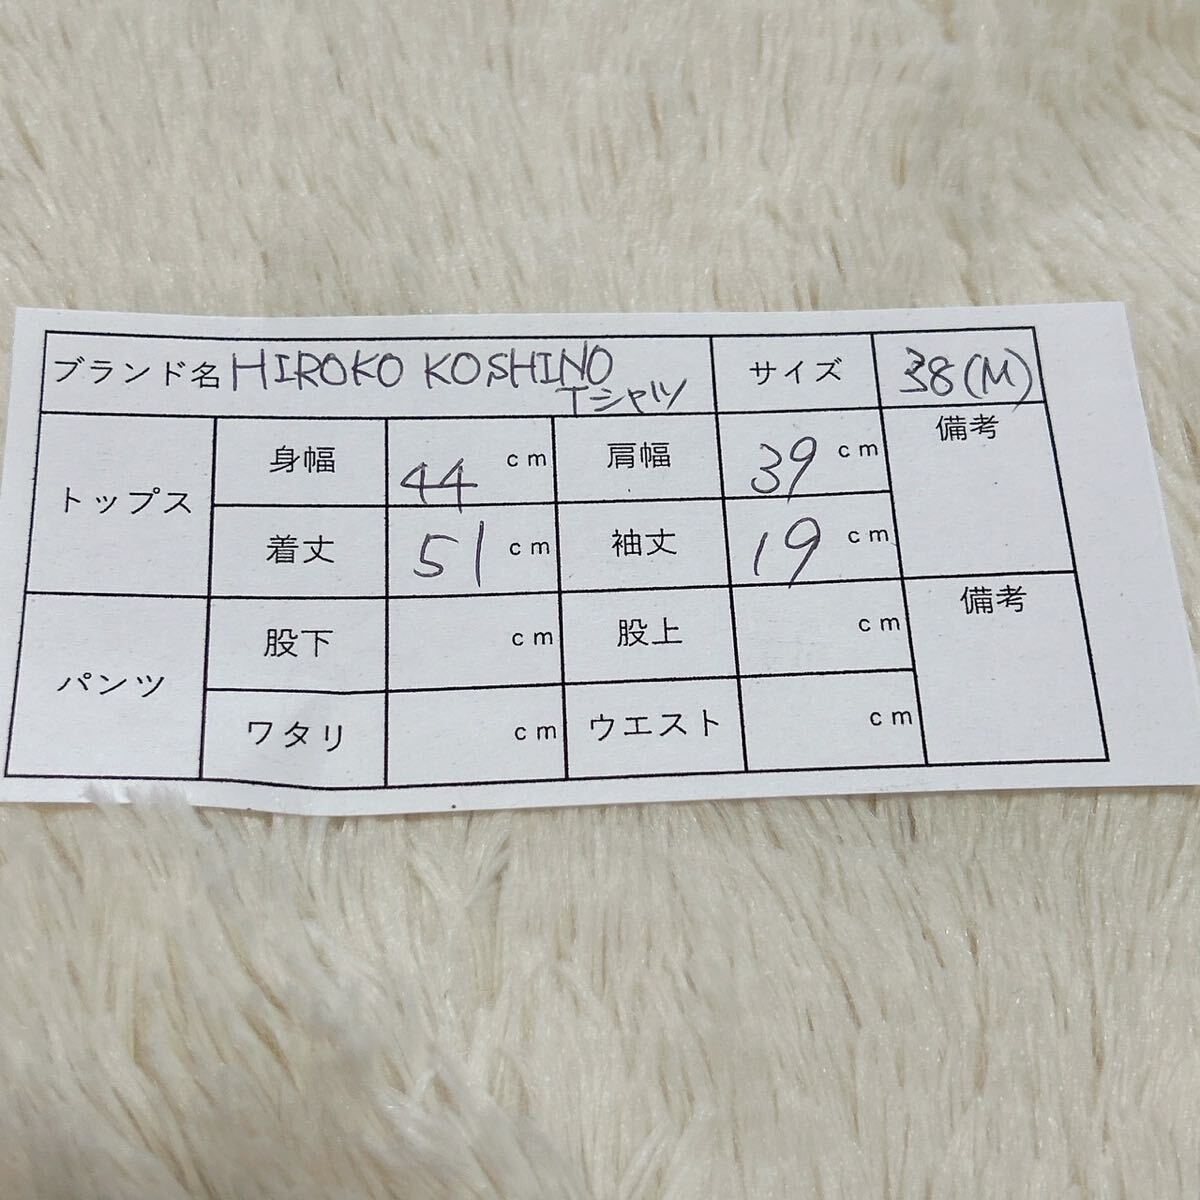 ブランド名 HIROKO KOSHINO サイズ 38(M)
Tシャツ
トップス 身幅 44 cm 肩幅 39 cm 備考
着丈 51 cm 袖丈 19 cm
パンツ 股下 cm 股上 cm 備考
ワタリ cm ウエスト cm